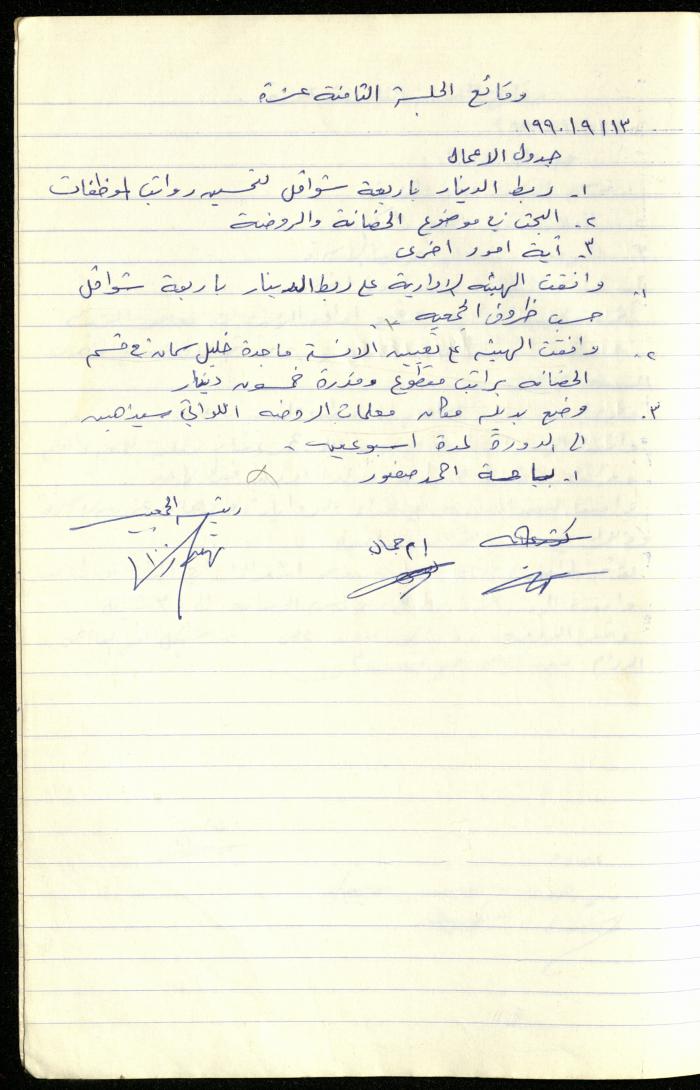 وقائع الجلسة الثامنة عشرة
١٩٩٠/٩/١٣
جدول الاعمال
١- ربط الدينار باربعة شواقل لتحسين رواتب الموظفات
٢- البحث في موضوع الحضانة والروضة
٣- آية امور اخرى
١- وافقت الهيئه الادارية على ربط الدينار باربعة شواقل
حسب ظروف الجمعيه
٢- وافقت الهيئه على تعيين الانسة ماجدة خليل سمان في قسم
الحضانه براتب مقطوع وقدرة خمسون دينار
٣- وضع بديله مكان معلمات الروضه اللواتي سيذهبن
الى الدورة لمدة اسبوعين
١- احمد صفور
رئيسة الجمعيه
ام جمال